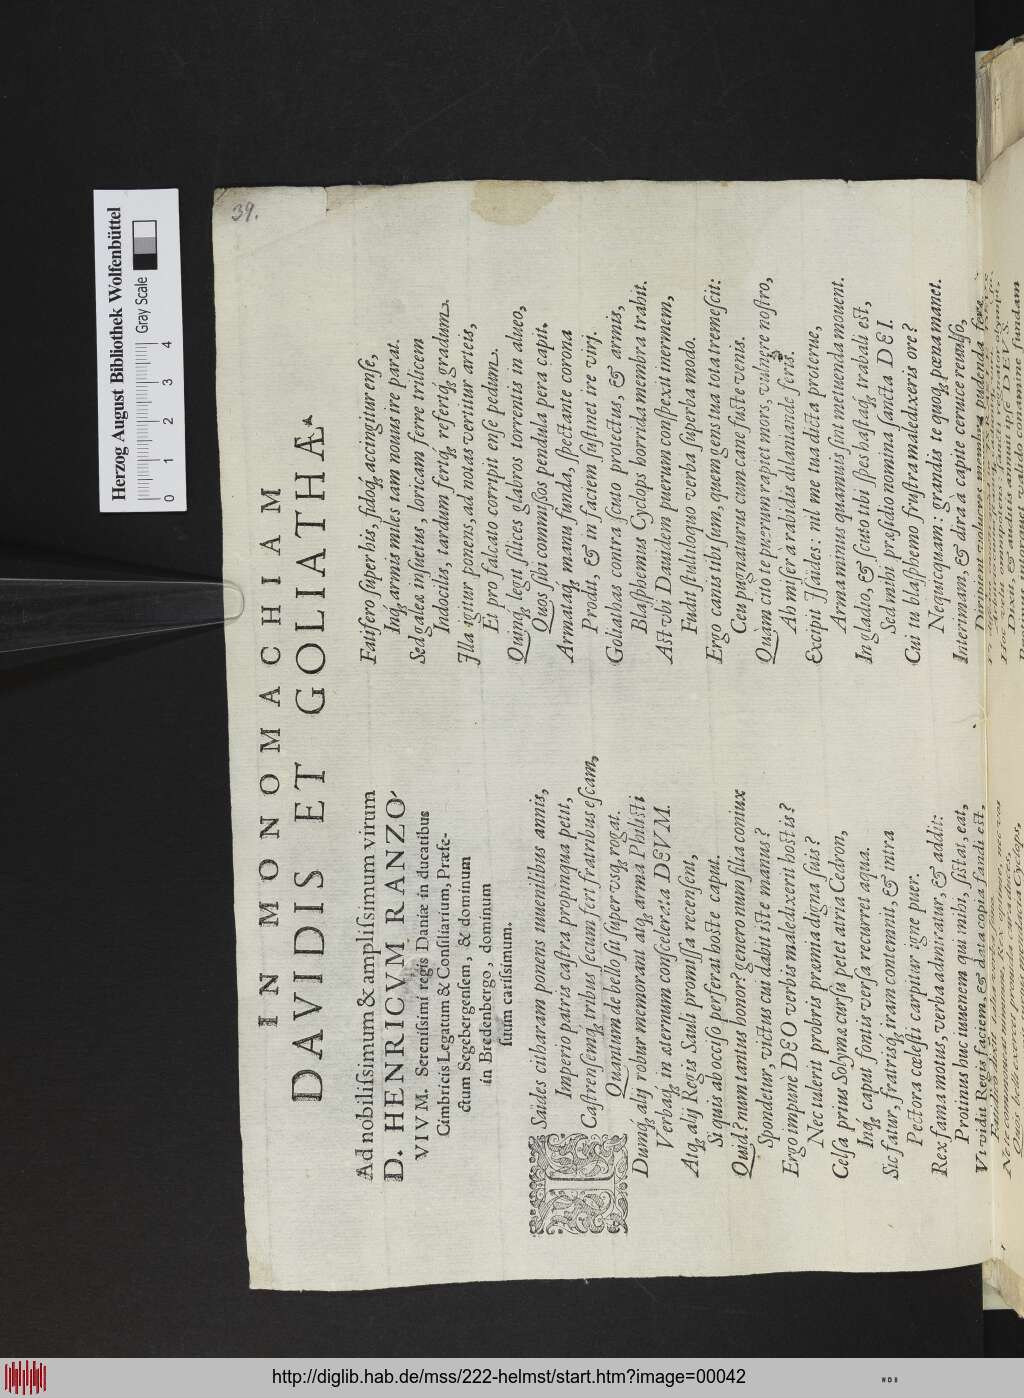 39.
IN MONOMACHIAM
DAVIDIS ET GOLIATHÆ
Ad nobiliſsimum & ampliſsimum virum
D. HENRICVM RANZO-
VIVM. Sereniſsimi regis Daniæ in ducatibus
Cimbricis Legatum & Conſiliarium, Præfe-
ctum Segebergenſem, & dominum
in Bredenbergo, dominum
ſuum cariſsimum.
ISaides citharam ponens iuuenilibus annis,
Imperio patris caſtra propinqua petit,
Caſtrenſemq́; tribus ſecum fert fratribus eſcam,
Quantum de bello ſit ſuper vsq́; rogat.
Dumq́; alij robur memorant atq́; arma Philiſti
Verbaq́; in æternum conſcelerata DEVM.
Atq́; alij Regis Sauli promiſſa recenſent,
Si quis ab occiſo perferat hoſte caput.
Quid? num tantus honor? generonum filia coniux
Spondetur, victus cui dabit iſte manus?
Ergo impunè DEO verbis maledixerit hoſtis?
Nec tulerit probris præmia digna ſuis?
Celſa prius Solymæ curſu petet atria Cedron,
Inq́; caput fontis verſa recurret aqua.
Sic fatur, fratrisq́; iram contemnit, & intra
Pectora cœleſti carpitur igne puer.
Rex fama motus, verba admiratur, & addit:
Protinus huc iuuenem qui mihi, ſiſtat, eat,
Vt vidit Regis faciem, & data copia fandi eſt,
Fatifero ſuper his, fidoq́; accingitur enſe,
Inq́; armis miles tam nouus ire parat.
Sed galeæ inſuetus, loricam ferre trilicem
Indocilis, tardum fertq́; refertq́; gradum.
Illa igitur ponens, ad notas vertitur arteis,
Et pro falcato corripit enſe pedum.
Quinq́; legit ſilices glabros torrentis in alueo,
Quos ſibi commiſſos pendula pera capit.
Armataq́; manu funda, ſpectante corona
Prodit, & in faciem ſuſtinet ire viri.
Goliathas contra ſcuto protectus, & armis,
Blaſphemus Cyclops horrida membra trahit.
Aſt vbi Dauidem puerum conſpexit inermem,
Fudit ſtultiloquo verba ſuperba modo.
Ergo canis tibi ſum, quem gens tua tota tremeſcit:
Ceu pugnaturus cum cane fuſte venis.
Quàm cito te puerum rapiet mors, vulnere noſtro,
Ah miſer à rabidis dilaniande feris.
Excipit Iſſaides: nil me tua dicta proteruę,
Arma minus quamuis ſint metuenda mouent.
In gladio, & ſcuto tibi ſpes haſtaq́; trabali eſt,
Sed mihi præſidio nomina ſancta DEI.
Cui tu blaſphemo fruſtra maledixeris ore?
Nequcquam: grandis te quoq́; pœna manet.
Interimam, & dira à capite ceruice reuulſo,
Diripient volucres membra pudenda feræ.
Herzog August Bibliothek Wolfenbüttel
Gray Scale
0 1 2 3 4
http://diglib.hab.de/mss/222-helmst/start.htm?image=00042